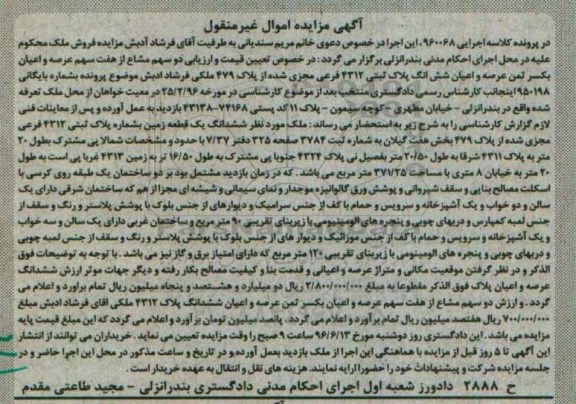 آگهی مزایده اموال غیرمنقول
در پرونده کلاسه اجرایی ۹۶۰۰۶۸، این اجرا در خصوص دعوی خانم مریم سندیانی به طرفیت آقای فرشاد آدبش مزایده فروش ملک محکوم
علیه در محل اجرای احکام مدنی بندرانزلی برگزار می گردد : در خصوص تعیین قیمت و ارزیابی دو سهم مشاع از هفت سهم عرصه و اعیان
بکسر ثمن عرصه و اعیان شش انگ پلاک ثبتی ۴۳۱۲ فرعی مجزی شده از پلاک ۴۷۹ ملکی فرشاد ادبش موضوع پرونده بشماره بایگانی
۱۹۵۰۱۹۸ اینجانب کارشناس رسمی دادگستری منتخب بعد از موضوع کارشناسی در مورخه ۲۵/۲/۹۶ در معیت خواهان از محل ملک تعرفه
شده واقع در بندرانزلی - خیابان مطهری - کوچه سیمون - پلاک ۱۱ کد پستی ۷۴۱۶۸-۴۳۱۳۸ بازدید به عمل آورده و پس از معاینات فنی
لازم گزارش کارشناسی را به شرح زیر به استحضار می رساند : ملک مورد نظر ششدانگ یک قطعه زمین بشماره پلاک ثبتی ۴۳۱۲ فرعی
مجزی شده از پلاک ۴۷۹ بخش هفت گیلان به شماره ثبت ۳۷۸۳ صفحه ۳۲۵ دفتر ۷/۳۷ با حدود و مشخصات شمالا پی مشترک بطول ۲۰
متر به پلاک ۴۳۱۱ شرقا به طول ۲۰/۵۰ متر بفصیل نی پلاک ۴۳۲۴ جنوبا پی مشترک به طول ۱۶/۵۰ تر به زمین ۴۳۱۳ غربا پی است به طول
۲۰ متر به خیابان ۸ متری با مساحت ۳۷۱/۲۵ متر مربع می باشد . که در زمان بازدید مشتمل بود بر دو ساختمان یک طبقه روی کرسی با
اسکلت مصالح بنایی و سقف شیروانی و پوشش ورق گالوانیزه موجدار و نمای سیمانی و شیشه ای مجزا از هم که ساختمان شرقی دارای یک
سالن و دو خواب و یک آشپزخانه و سرویس و حمام با کف از جنس سرامیک و دیوارهای از جنس بلوک با پوشش پلاستر و رنگ و سقف از
جنس لمبه کمپارس و دربهای چوبی و پنجره های الومینیومی با زیربنای تقریبی ۹۰ متر مربع و ساختمان غربی دارای یک سالن و سه خواب
و یک آشپزخانه و سرویس و حمام با کف از جنس موزائیک و دیوار های از جنس بلوک با پوشش پلاستر و رنگ و سقف از جنس لمبه چوبی
و دربهای چوبی و پنجره های الومینومی با زیربنای تقریبی ۱۲۰ متر مربع که دارای امتیاز برق و گاز نیز می باشد . با توجه به توضیحات فوق
الذکر و در نظر گرفتن موقعیت مکانی و متراژ عرصه و اعیانی و قدمت بنا و کیفیت مصالح بکار رفته و دیگر جهات موثر ارزش ششدانگ
عرصه و اعیان پلاک فوق الذکر مقطوعا به مبلغ ۲/۸۰۰/۰۰۰/۰۰۰ ریال دو میلیارد و هشتصد و پنجاه میلیون ریال تمام براورد و اعلام می
گردد . و ارزش دو سهم مشاع از هفت سهم عرصه و اعیان بکسر ثمن عرصه و اعیان ششدانگ پلاک ۴۳۱۲ ملکی اقای فرشاد ادبش مبلغ
۷۰۰/۰۰۰/۰۰۰ ریال هفتصد میلیون ریال تمام برآورد و اعلام می گردد . پانصد میلیون تومان برآورد و اعلام می گردد که این مبلغ قیمت پایه
مزایده می باشد . این دادگستری روز دوشنبه مورخ ۹۶/۶/۱۳ ساعت ۹ صبح را وقت مزایده تعیین می نماید . خریداران می توانند از انتشار
این آگهی تا ۵ روز قبل از مزایده با هماهنگی این اجرا از ملک بازدید بعمل آورده و در تاریخ و ساعت مذکور در محل این اجرا حاضر و در
جلسه مزایده شرکت و پیشنهادات خود را حضورا ارایه نمایند. هزینه های نقل و انتقال به عهده خریدار است .
ح ۲۸۸۸ دادورز شعبه اول اجرای احکام مدنی دادگستری بندرانزلی - مجید طاعتی مقدم